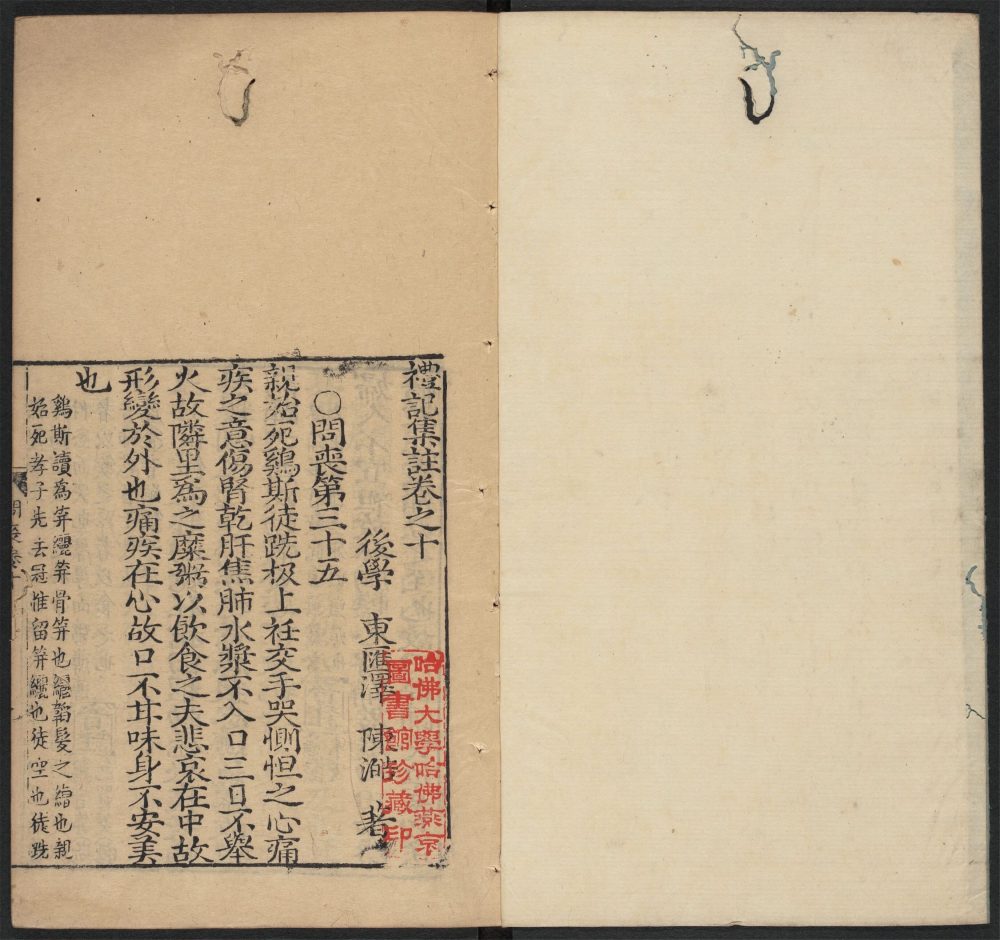 禮記集註卷之十
後學 東匯澤 陳澔 著
○問喪第三十五
親始死鷄斯徒跣扱上衽交手哭惻怛之心痛
疾之意傷腎乾肝焦肺水漿不入口三日不舉
火故隣里為之糜粥以飲食之夫悲哀在中故
形變於外也痛疾在心故口不甘味身不安美
也
鷄斯讀為笄纚笄骨笄也纚韜髮之繒也親
始死孝子先去冠惟留笄纚也徒空也徒跣
哈佛大學哈佛燕京
圖書館珍藏印